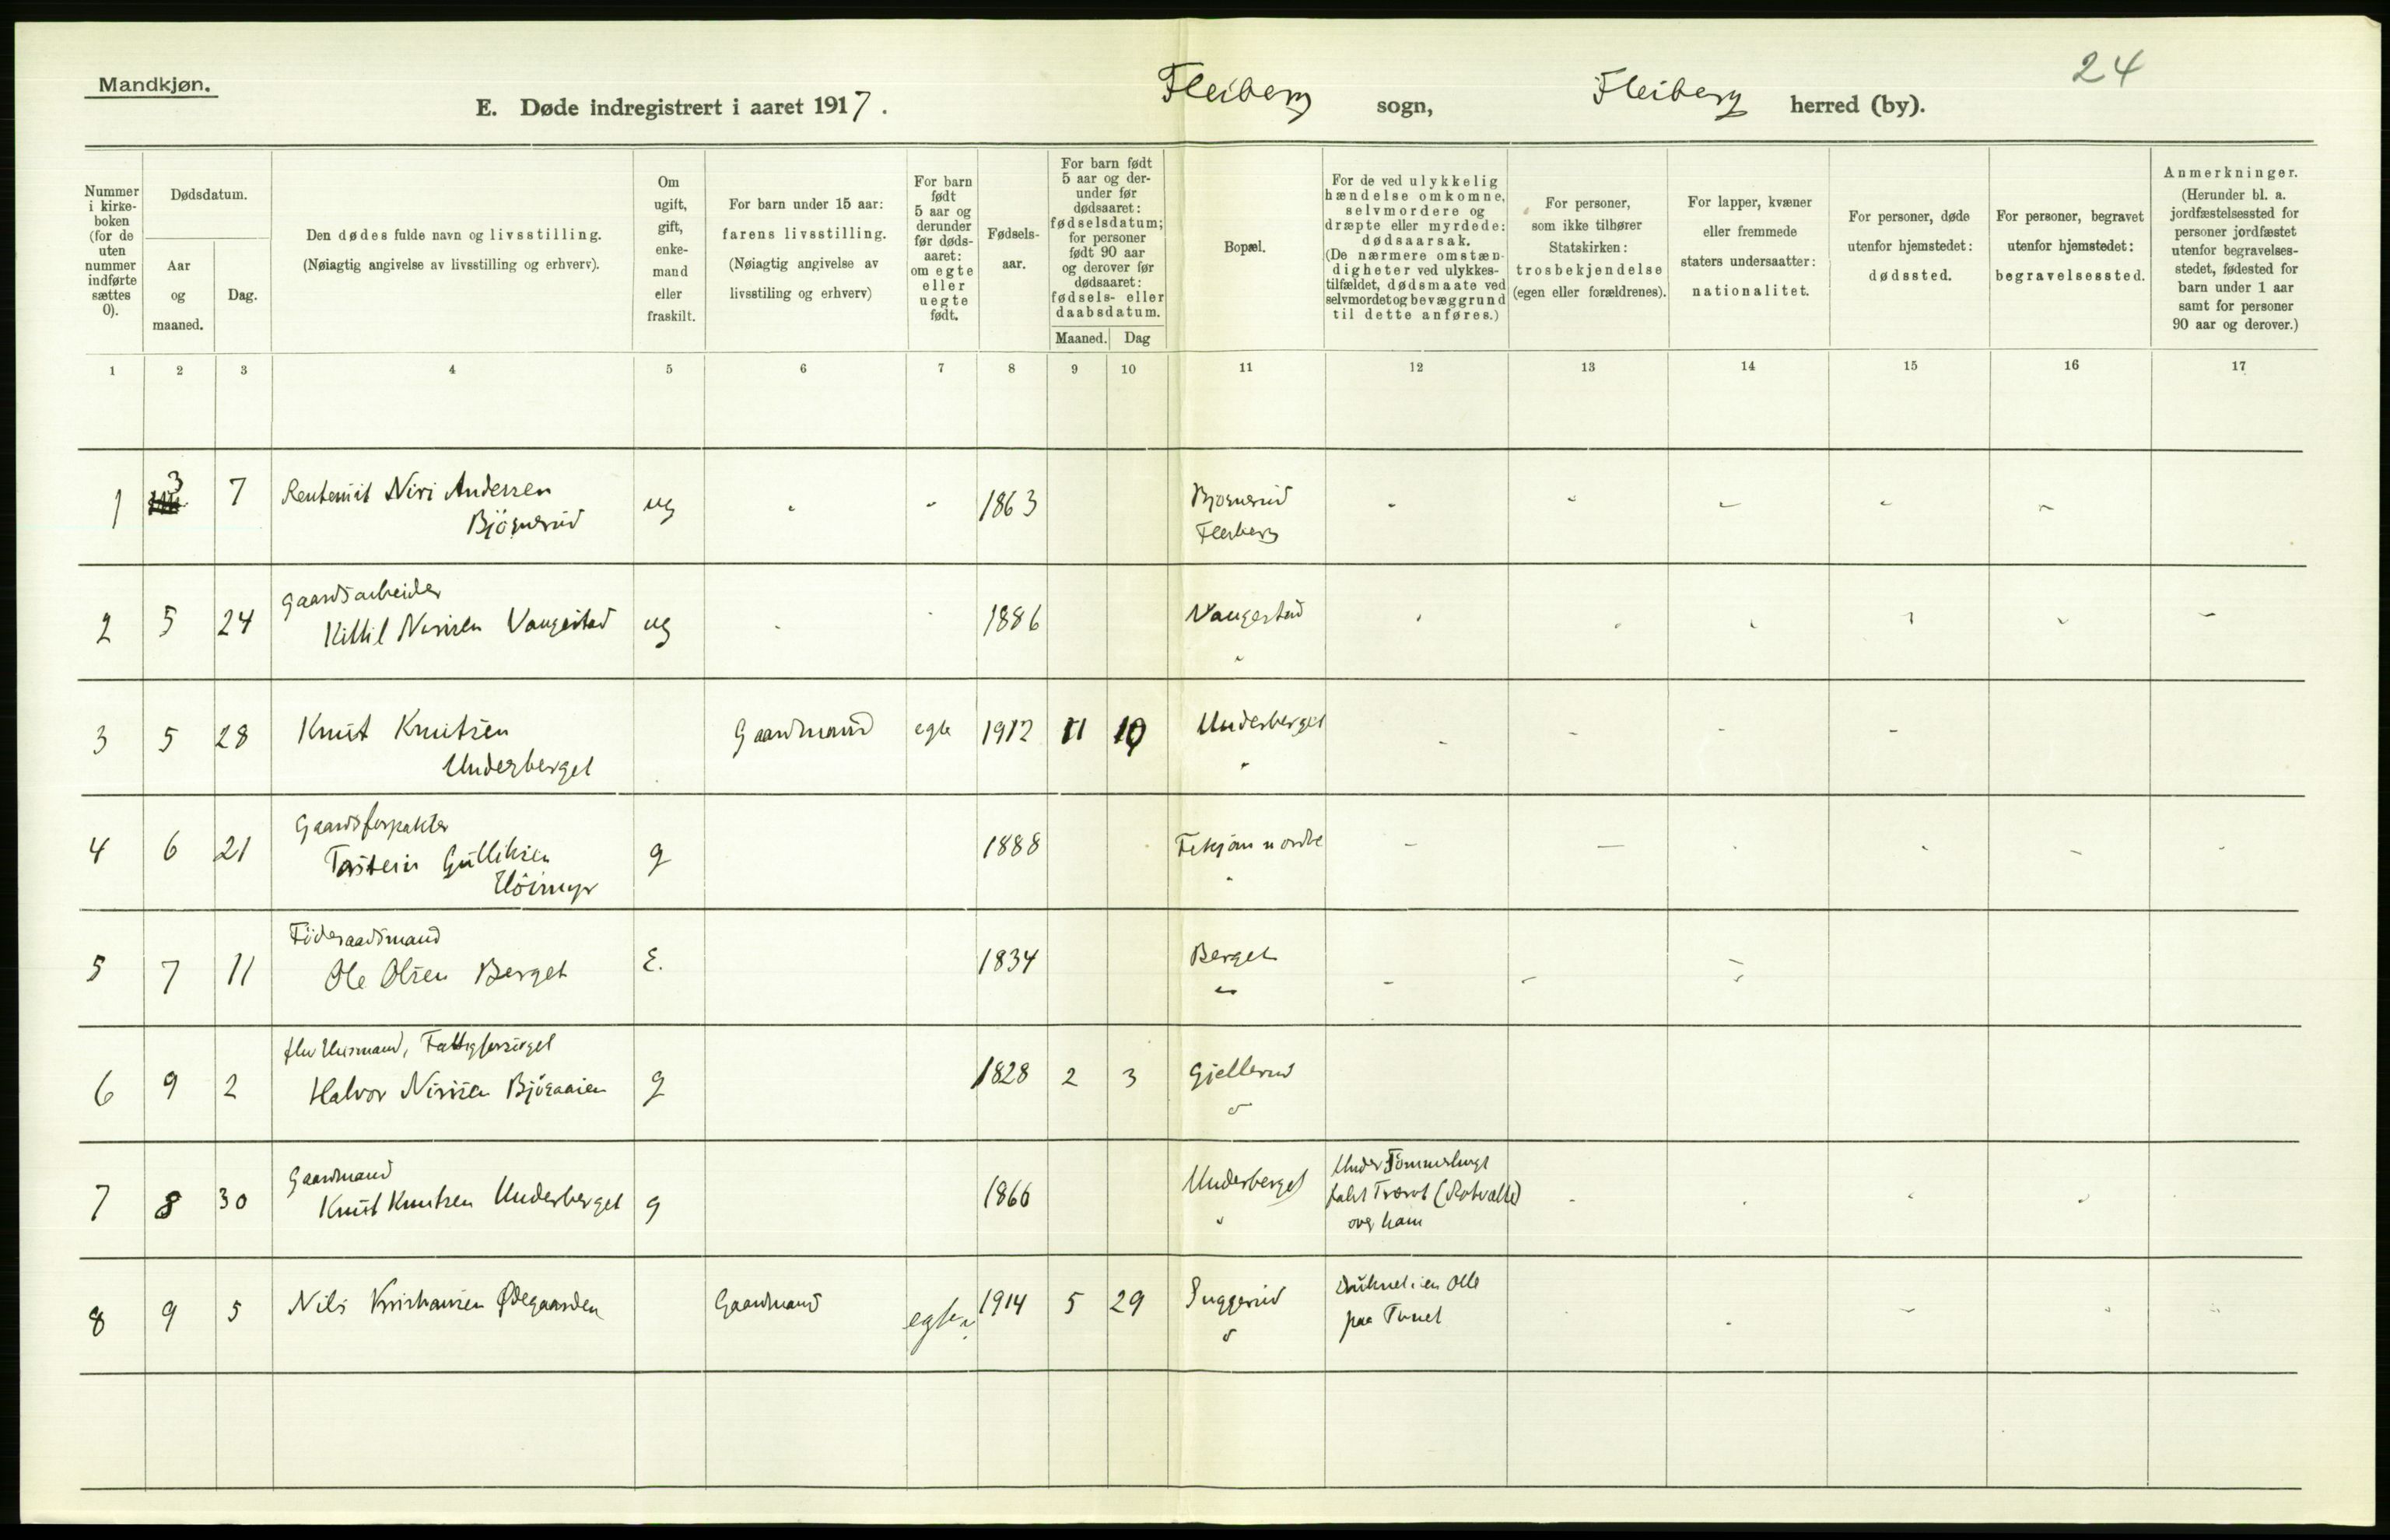 Mandkjøn.
24
E. Døde indregistrert i aaret 1917. Flesberg sogn, Flesberg herred (by).
Nummer i kirke-boken (for de uten nummer indførte sættes 0).
Dødsdatum.
Aar og maaned.
Dag.
Den dødes fulde navn og livsstilling.
(Nøiagtig angivelse av livsstilling og erhverv).
Om ugift, gift, enke-mand eller fraskilt.
For barn under 15 aar: farens livsstilling.
(Nøiagtig angivelse av livsstiling og erhverv)
For barn født 5 aar og derunder før døds-aaret: om egte eller uegte født.
Fødsels-aar.
For barn født 5 aar og der-under før dødsaaret: fødselsdatum; for personer født 90 aar og derover før dødsaaret: fødsels- eller daabsdatum.
Maaned.
Dag
Bopæl.
For de ved ulykkelig hændelse omkomne, selvmordere og dræpte eller myrdede: dødsaarsak.
(De nærmere omstæn-digheter ved ulykkes-tilfældet, dødsmaate ved selvmordet og bevæggrund til dette anføres.)
For personer, som ikke tilhører Statskirken: trosbekjendelse (egen eller forældrenes).
For lapper, kvæner eller fremmede staters undersaatter: nationalitet.
For personer, døde utenfor hjemstedet: dødssted.
For personer, begravet utenfor hjemstedet: begravelsessted.
Anmerkninger.
(Herunder bl. a. jordfæstelsessted for personer jordfæstet utenfor begravelses-stedet, fødested for barn under 1 aar samt for personer 90 aar og derover.)
1 2 3 4 5 6 7 8 9 10 11 12 13 14 15 16 17
1 3 7 Rentenist Niri Anderssen ug " - 1863 Bjørnerud - - - - -
Bjørnerud Flesberg
Gaardsarbeider
2 5 24 Kittil Nirisen Vangestad ug - - 1886 Vangestad
"
3 5 28 Knut Knutsen Gaardmand egte 1912 11 10 Underberget - - - -
Underberget "
Gaardsforpakter
4 6 21 Torstein Gulliksen g 1888 Fekjan nordre - — - - - -
Høimyr "
Føderaadsmand
5 7 11 Ole Olsen Berget E. 1834 Berget - - -
"
fhv Husmand, Fattigforsørget
6 9 2 Halvor Nirisen Bjøraaien g 1828 2 3 Gjellerud
"
Gaardmand
7 8 30 Knut Knutsen Underberget g 1866 Underberget Under Tømmerhugst
faldt Trærot (Rotvælte)
over ham
8 9 5 Nils Kristiansen Ødegaarden Gaardmand egte 1914 5 29 Suggerud Druknet i en Olle
" paa Tunet